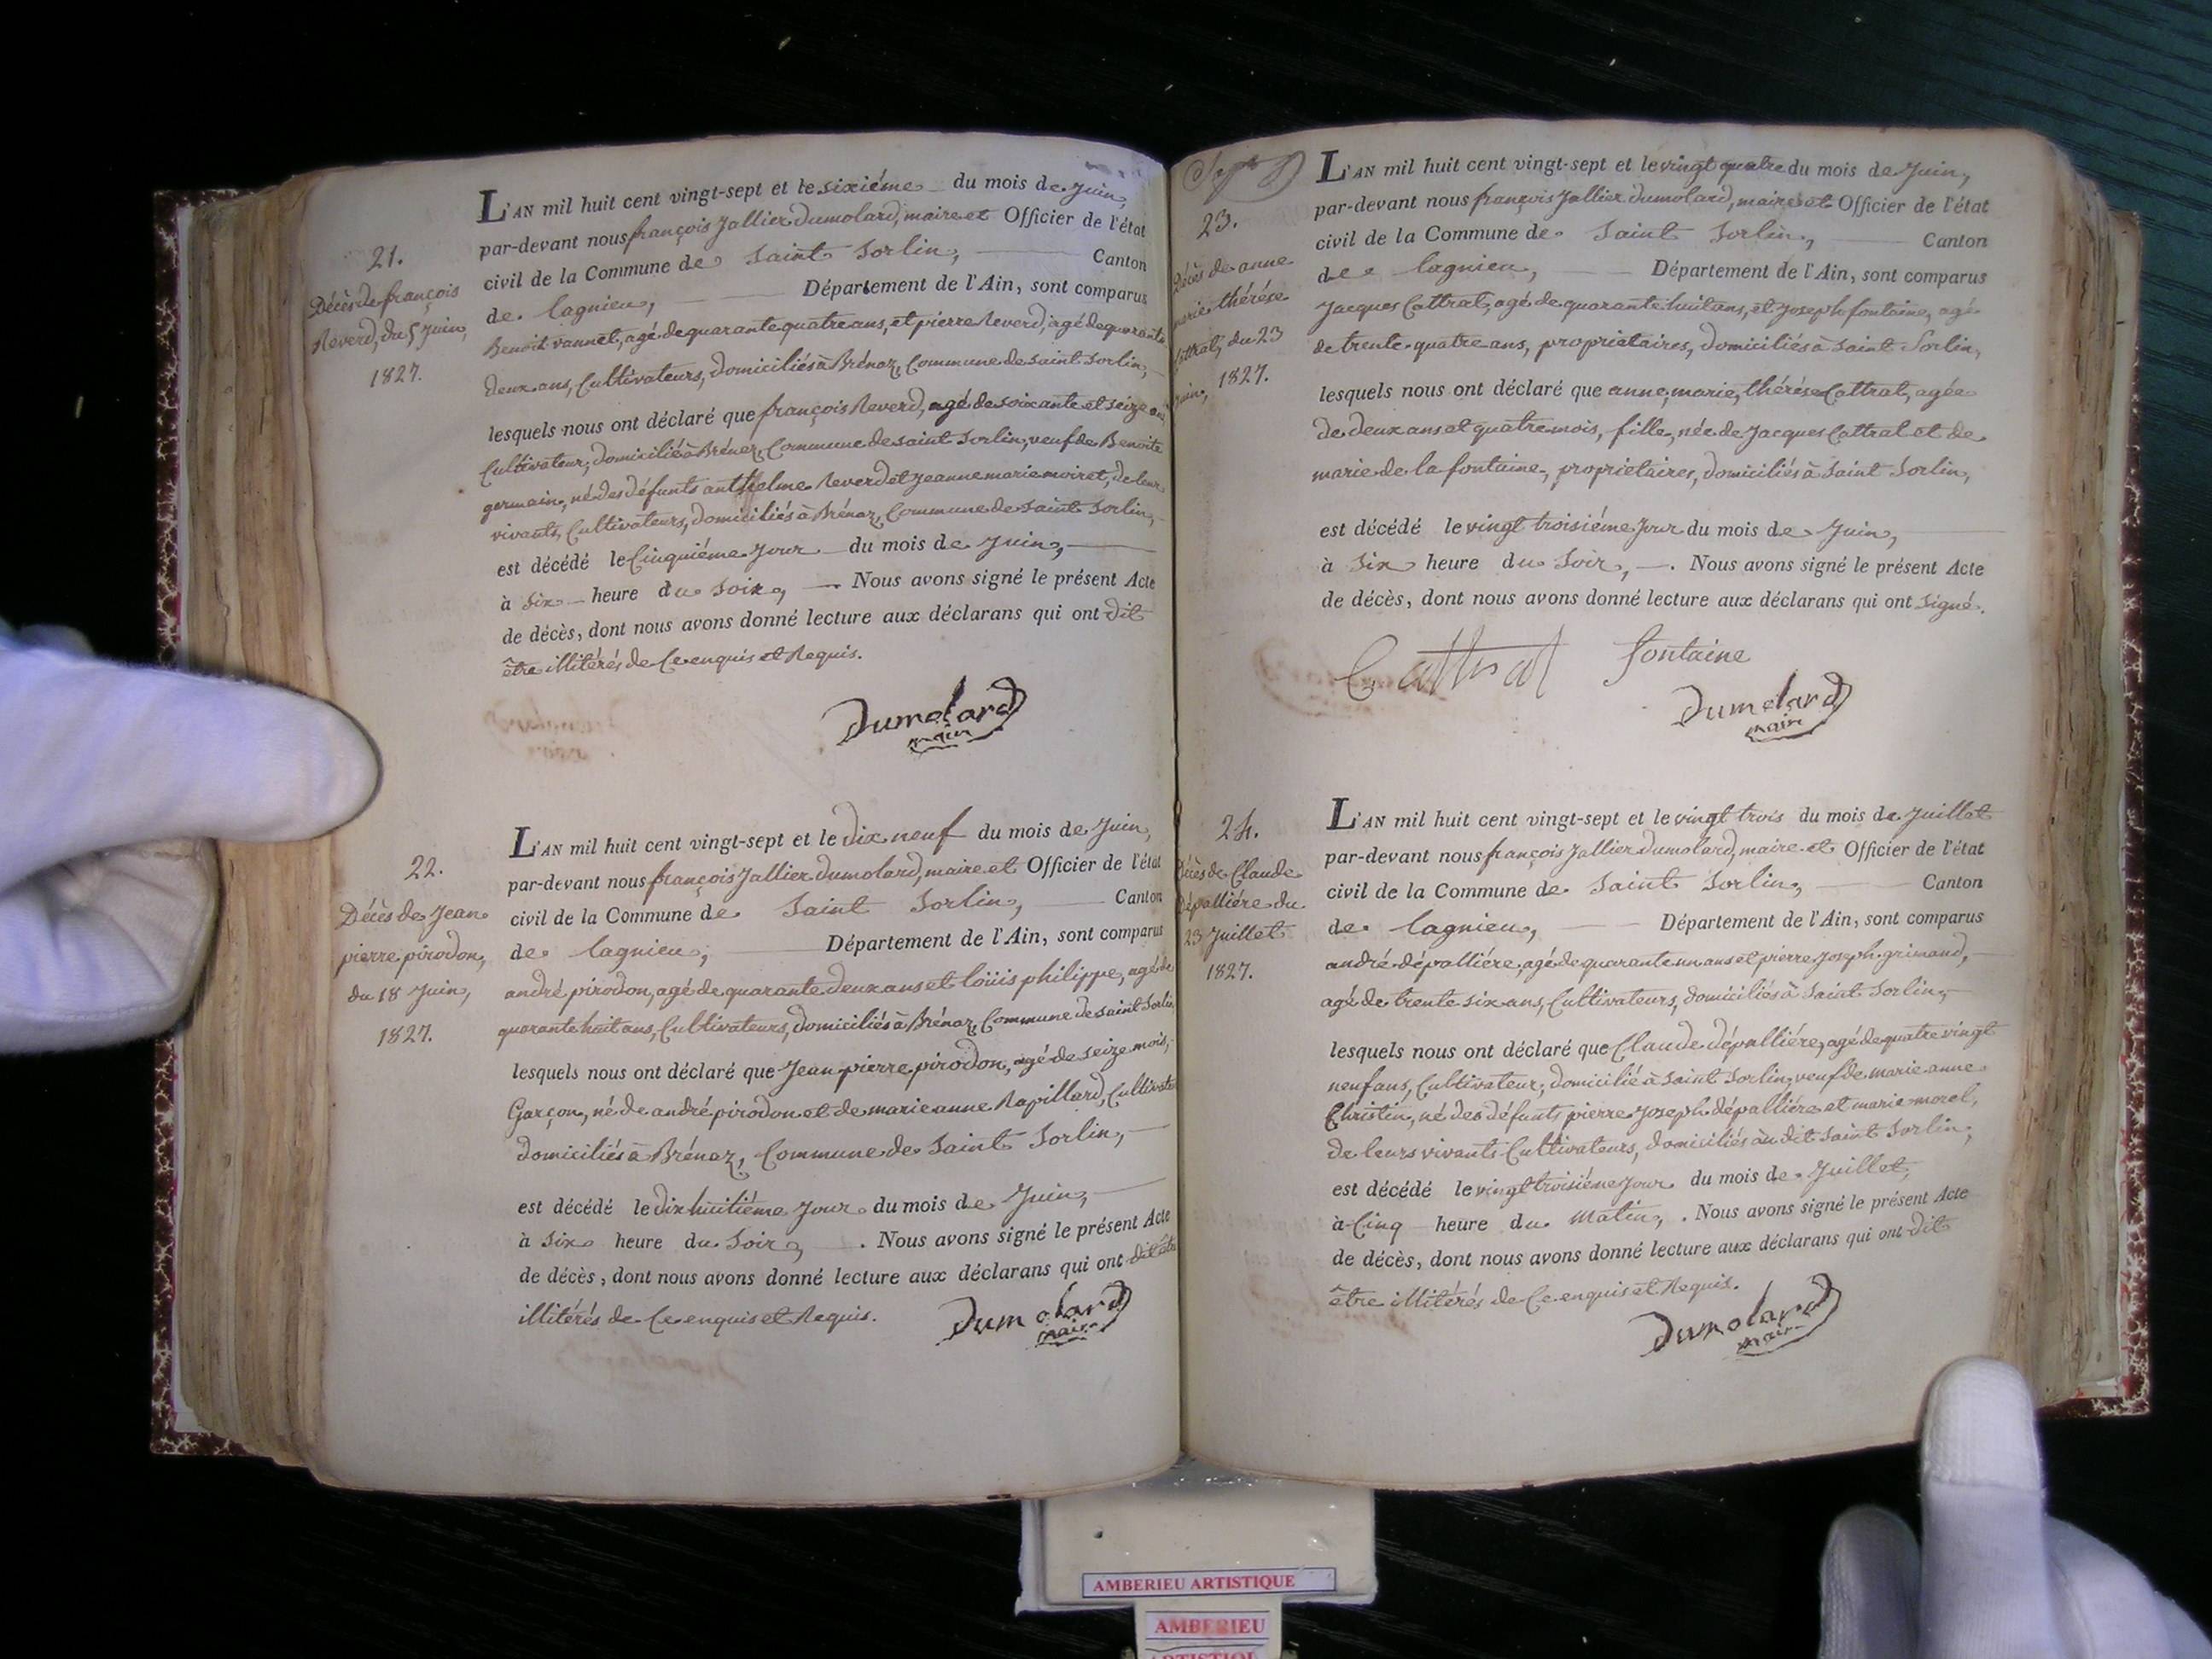 21.
Décès de françois
Reverd, du 5 Juin,
1827.
L'AN mil huit cent vingt-sept et le sixiéme du mois de Juin,
par-devant nous françois Jallier Dumolard, maire et Officier de l'état
civil de la Commune de Saint Sorlin, Canton
de lagnieu, Département de l'Ain, sont comparus
Benoit vannet, agé de quarante quatre ans, et pierre Reverd, agé de quarante
deux ans, Cultivateurs, domiciliés à Brénaz, Commune de saint Sorlin,
lesquels nous ont déclaré que françois Reverd, agé de soixante et seize ans
Cultivateur, domicilié à Brénaz, Commune de saint Sorlin, veuf de Benoite
germain, né des défunts anthelme Reverd et Jeanne marie moiret, de leur
vivants, Cultivateurs, domiciliés à Brénaz, Commune de saint Sorlin,
est décédé le Cinquiéme Jour du mois de Juin,
à Six heure du soir, Nous avons signé le présent Acte
de décès, dont nous avons donné lecture aux déclarans qui ont dit
être illitérés de Ce enquis et Requis.
Dumolard
maire
22.
Décès de Jean
pierre pirodon,
du 18 Juin,
1827.
L'AN mil huit cent vingt-sept et le dix neuf du mois de Juin,
par-devant nous françois Jallier Dumolard, maire et Officier de l'état
civil de la Commune de Saint Sorlin, Canton
de lagnieu, Département de l'Ain, sont comparus
andré pirodon, agé de quarante deux ans et loüis philippe, agé de
quarante huit ans, Cultivateurs, domiciliés à Brénaz, Commune de saint Sorlin,
lesquels nous ont déclaré que Jean pierre pirodon, agé de seize mois,
Garçon, né de andré pirodon et de marie anne Rapillard, Cultivate
domiciliés à Brénaz, Commune de Saint Sorlin,
est décédé le dix huitiéme Jour du mois de Juin,
à Six heure du Soir, . Nous avons signé le présent Acte
de décès, dont nous avons donné lecture aux déclarans qui ont dit être
illitérés de Ce enquis et Requis.
Dumolard
maire
23.
Décès de anne
marie thérése
Cattrat, du 23
Juin, 1827.
L'AN mil huit cent vingt-sept et le vingt quatre du mois de Juin,
par-devant nous françois Jallier Dumolard, maire et Officier de l'état
civil de la Commune de Saint Sorlin, Canton
de lagnieu, Département de l'Ain, sont comparus
Jacques Cattrat, agé de quarante huit ans, et Joseph fontaine, agé
de trente quatre ans, propriétaires, domiciliés à Saint Sorlin,
lesquels nous ont déclaré que anne, marie, thérése Cattrat, agée
de deux ans et quatre mois, fille, née de Jacques Cattrat et de
marie de la fontaine, propriétaires, domiciliés à Saint Sorlin,
est décédé le vingt troisiéme Jour du mois de Juin,
à Six heure du Soir, . Nous avons signé le présent Acte
de décès, dont nous avons donné lecture aux déclarans qui ont signé.
Cattrat fontaine
Dumolard
maire
24.
Décès de Claude
dépalliére du
23 Juillet
1827.
L'AN mil huit cent vingt-sept et le vingt trois du mois de Juillet
par-devant nous françois Jallier Dumolard, maire et Officier de l'état
civil de la Commune de Saint Sorlin, Canton
de lagnieu, Département de l'Ain, sont comparus
andré dépalliére, agé de quarante un ans et pierre Joseph grimand,
agé de trente six ans, Cultivateurs, domiciliés à Saint Sorlin,
lesquels nous ont déclaré que Claude dépalliére, agé de quatre vingt
neuf ans, Cultivateur, domicilié à Saint Sorlin, veuf de marie anne
Christin, né des défunts pierre Joseph dépalliére et marie morel,
de leurs vivants Cultivateurs, domiciliés au dit Saint Sorlin,
est décédé le vingt troisiéme Jour du mois de Juillet,
à Cinq heure du Matin, . Nous avons signé le présent Acte
de décès, dont nous avons donné lecture aux déclarans qui ont dit
être illitérés de Ce enquis et Requis.
Dumolard
maire
AMBERIEU ARTISTIQUE
AMBERIEU
ARTISTIQUE